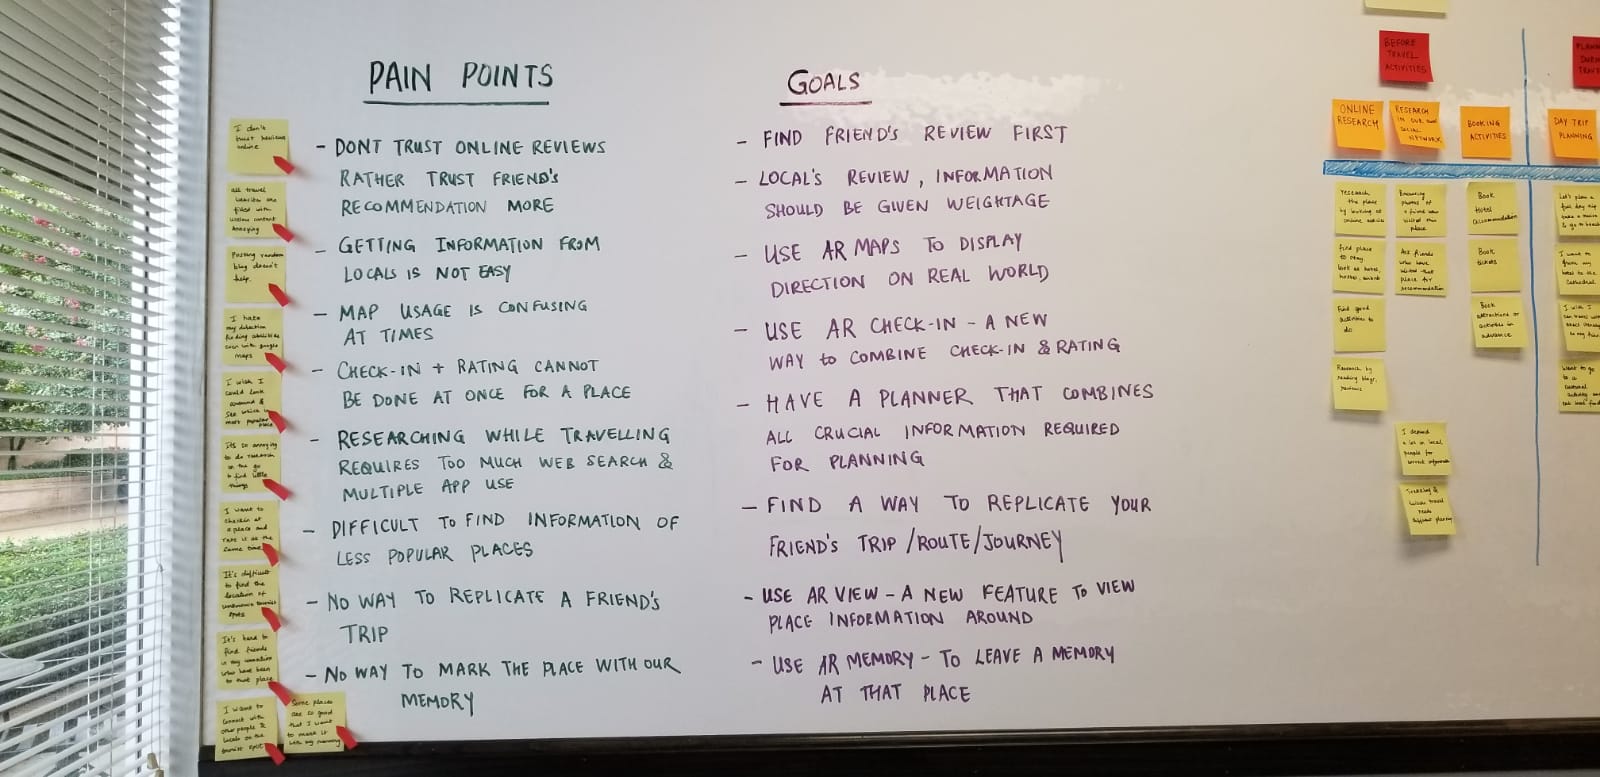 PAIN POINTS
- DONT TRUST ONLINE REVIEWS
RATHER TRUST FRIEND'S
RECOMMENDATION MORE
- GETTING INFORMATION FROM
LOCALS IS NOT EASY
- MAP USAGE IS CONFUSING
AT TIMES
- CHECK-IN + RATING CANNOT
BE DONE AT ONCE FOR A PLACE
- RESEARCHING WHILE TRAVELLING
REQUIRES TOO MUCH WEB SEARCH &
MULTIPLE APP USE
- DIFFICULT TO FIND INFORMATION OF
LESS POPULAR PLACES
- NO WAY TO REPLICATE A FRIEND'S
TRIP
- NO WAY TO MARK THE PLACE WITH OUR
MEMORY
GOALS
- FIND FRIEND'S REVIEW FIRST
- LOCAL'S REVIEW, INFORMATION
SHOULD BE GIVEN WEIGHTAGE
- USE AR MAPS TO DISPLAY
DIRECTION ON REAL WORLD
- USE AR CHECK-IN - A NEW
WAY to COMBINE CHECK-IN & RATING
- HAVE A PLANNER THAT COMBINES
ALL CRUCIAL INFORMATION REQUIRED
FOR PLANNING
- FIND A WAY TO REPLICATE YOUR
FRIEND'S TRIP/ROUTE/JOURNEY
- USE AR VIEW - A NEW FEATURE TO VIEW
PLACE INFORMATION AROUND
- USE AR MEMORY - TO LEAVE A MEMORY
AT THAT PLACE
I don't
trust reviews
online
all travel
websites are
filled with
useless content
Annoying
Posting random
blog doesn't
help.
I hate
my direction
finding abilities
even with google
maps
I wish I
could look
around &
see which is
most popular
place
Its so annoying
to do research
on the go
to find little
things
I want to
checkin at
a place and
rate it at the
same time
It's difficult
to find the
location of
tourist
spots
It's hard to
find friends
in my
who have been
to that place
I want to
connect with
other people &
locals on the
tourist spot
Some places
are so good
that I want
to mark it
with my memory
BEFORE
TRAVEL
ACTIVITIES
ONLINE
RESEARCH
RESEARCH
IN OUR
SOCIAL
NETWORK
BOOKING
ACTIVITIES
DAY TRIP
PLANNING
research
the place
by looking at
online
find place
to stay
look at hotel,
hostel,
Find good
activities to
do
Research by
reading blogs,
reviews
Browsing
photos of
a friend who
visited that
place
Ask friends
who have
visited that
place for
recommendation
I depend
a lot on local
people for
correct information
Book
Hotel
Accommodation
Book
tickets
Book
attractions or
activities in
advance
Let's plan a
full day trip
I want to
from my
hotel to the
Cathedral
I wish I
Want to go
to a